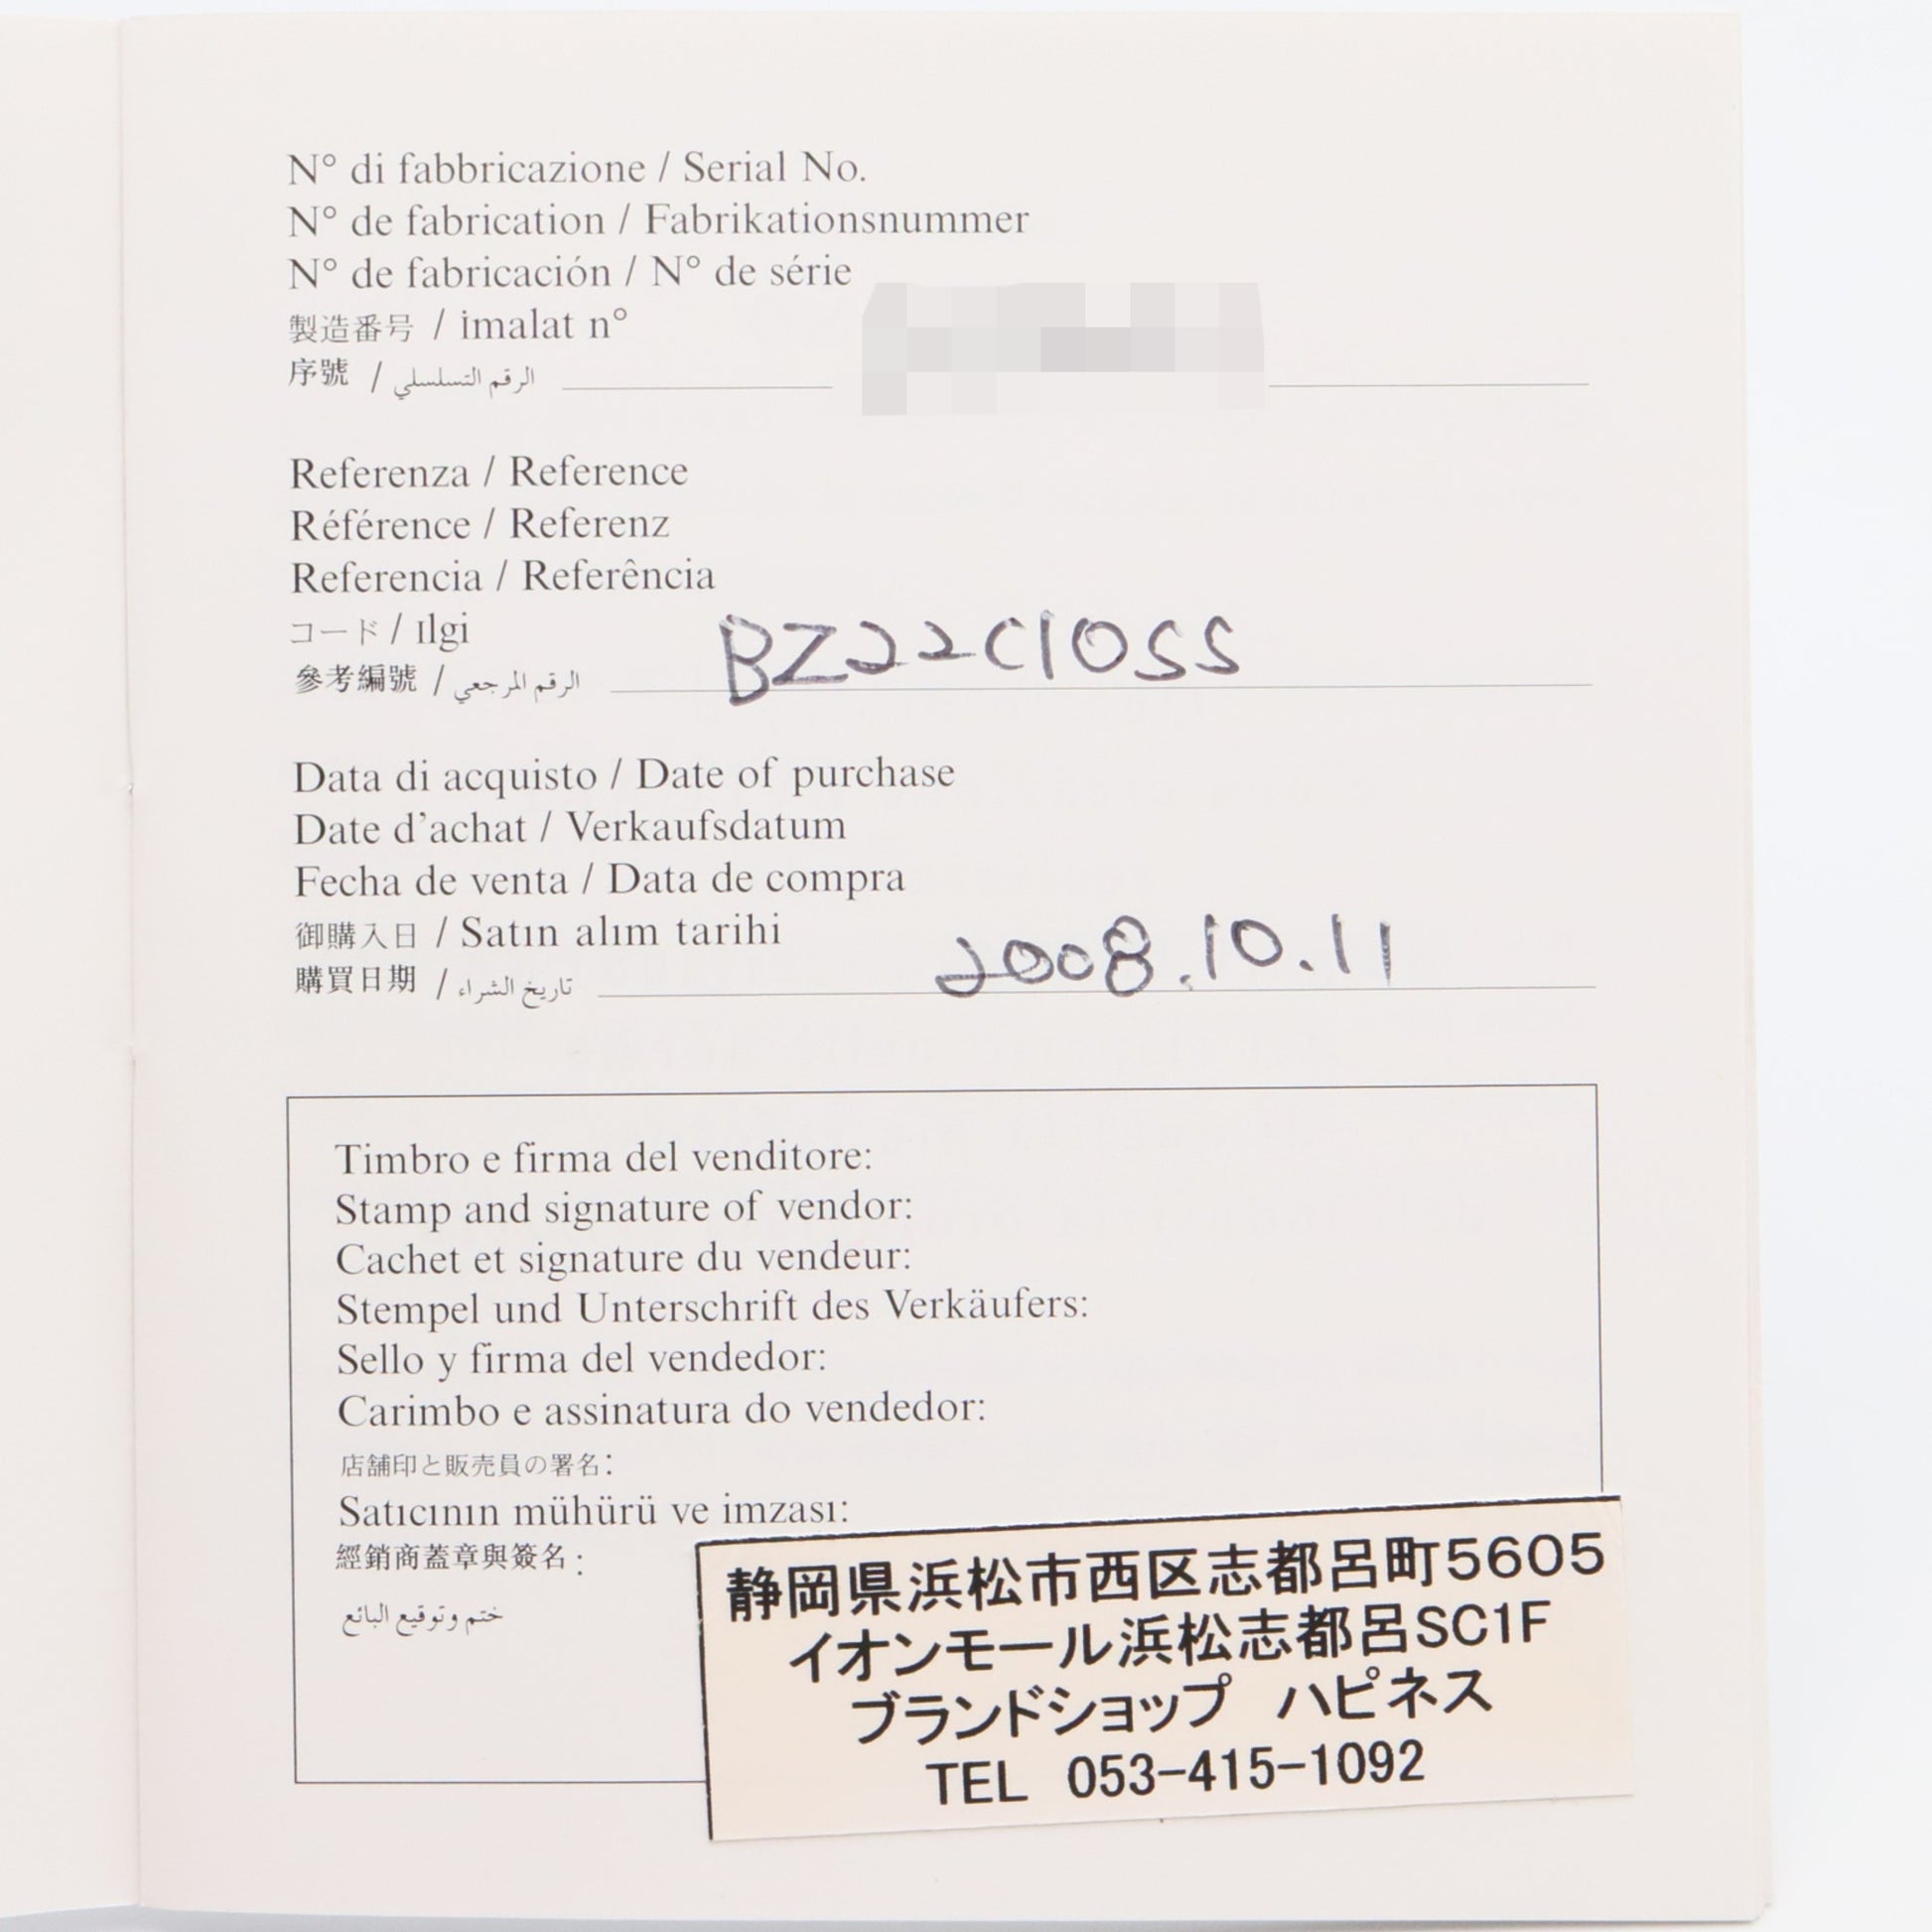 N° di fabbricazione / Serial No.
N° de fabrication / Fabrikationsnummer
N° de fabricación / N° de série
製造番号 / imalat n°
序號 / الرقم التسلسلي
Referenza / Reference
Référence / Referenz
Referencia / Referência
コード / Ilgi
參考編號 / الرقم المرجعي BZ22C10SS
Data di acquisto / Date of purchase
Date d'achat / Verkaufsdatum
Fecha de venta / Data de compra
御購入日 / Satın alım tarihi
購買日期 / تاريخ الشراء 2008.10.11
Timbro e firma del venditore:
Stamp and signature of vendor:
Cachet et signature du vendeur:
Stempel und Unterschrift des Verkäufers:
Sello y firma del vendedor:
Carimbo e assinatura do vendedor:
店舗印と販売員の署名:
Satıcının mühürü ve imzası:
經銷商蓋章與簽名:
ختم وتوقيع البائع
静岡県浜松市西区志都呂町5605
イオンモール浜松志都呂SC1F
ブランドショップ ハピネス
TEL 053-415-1092